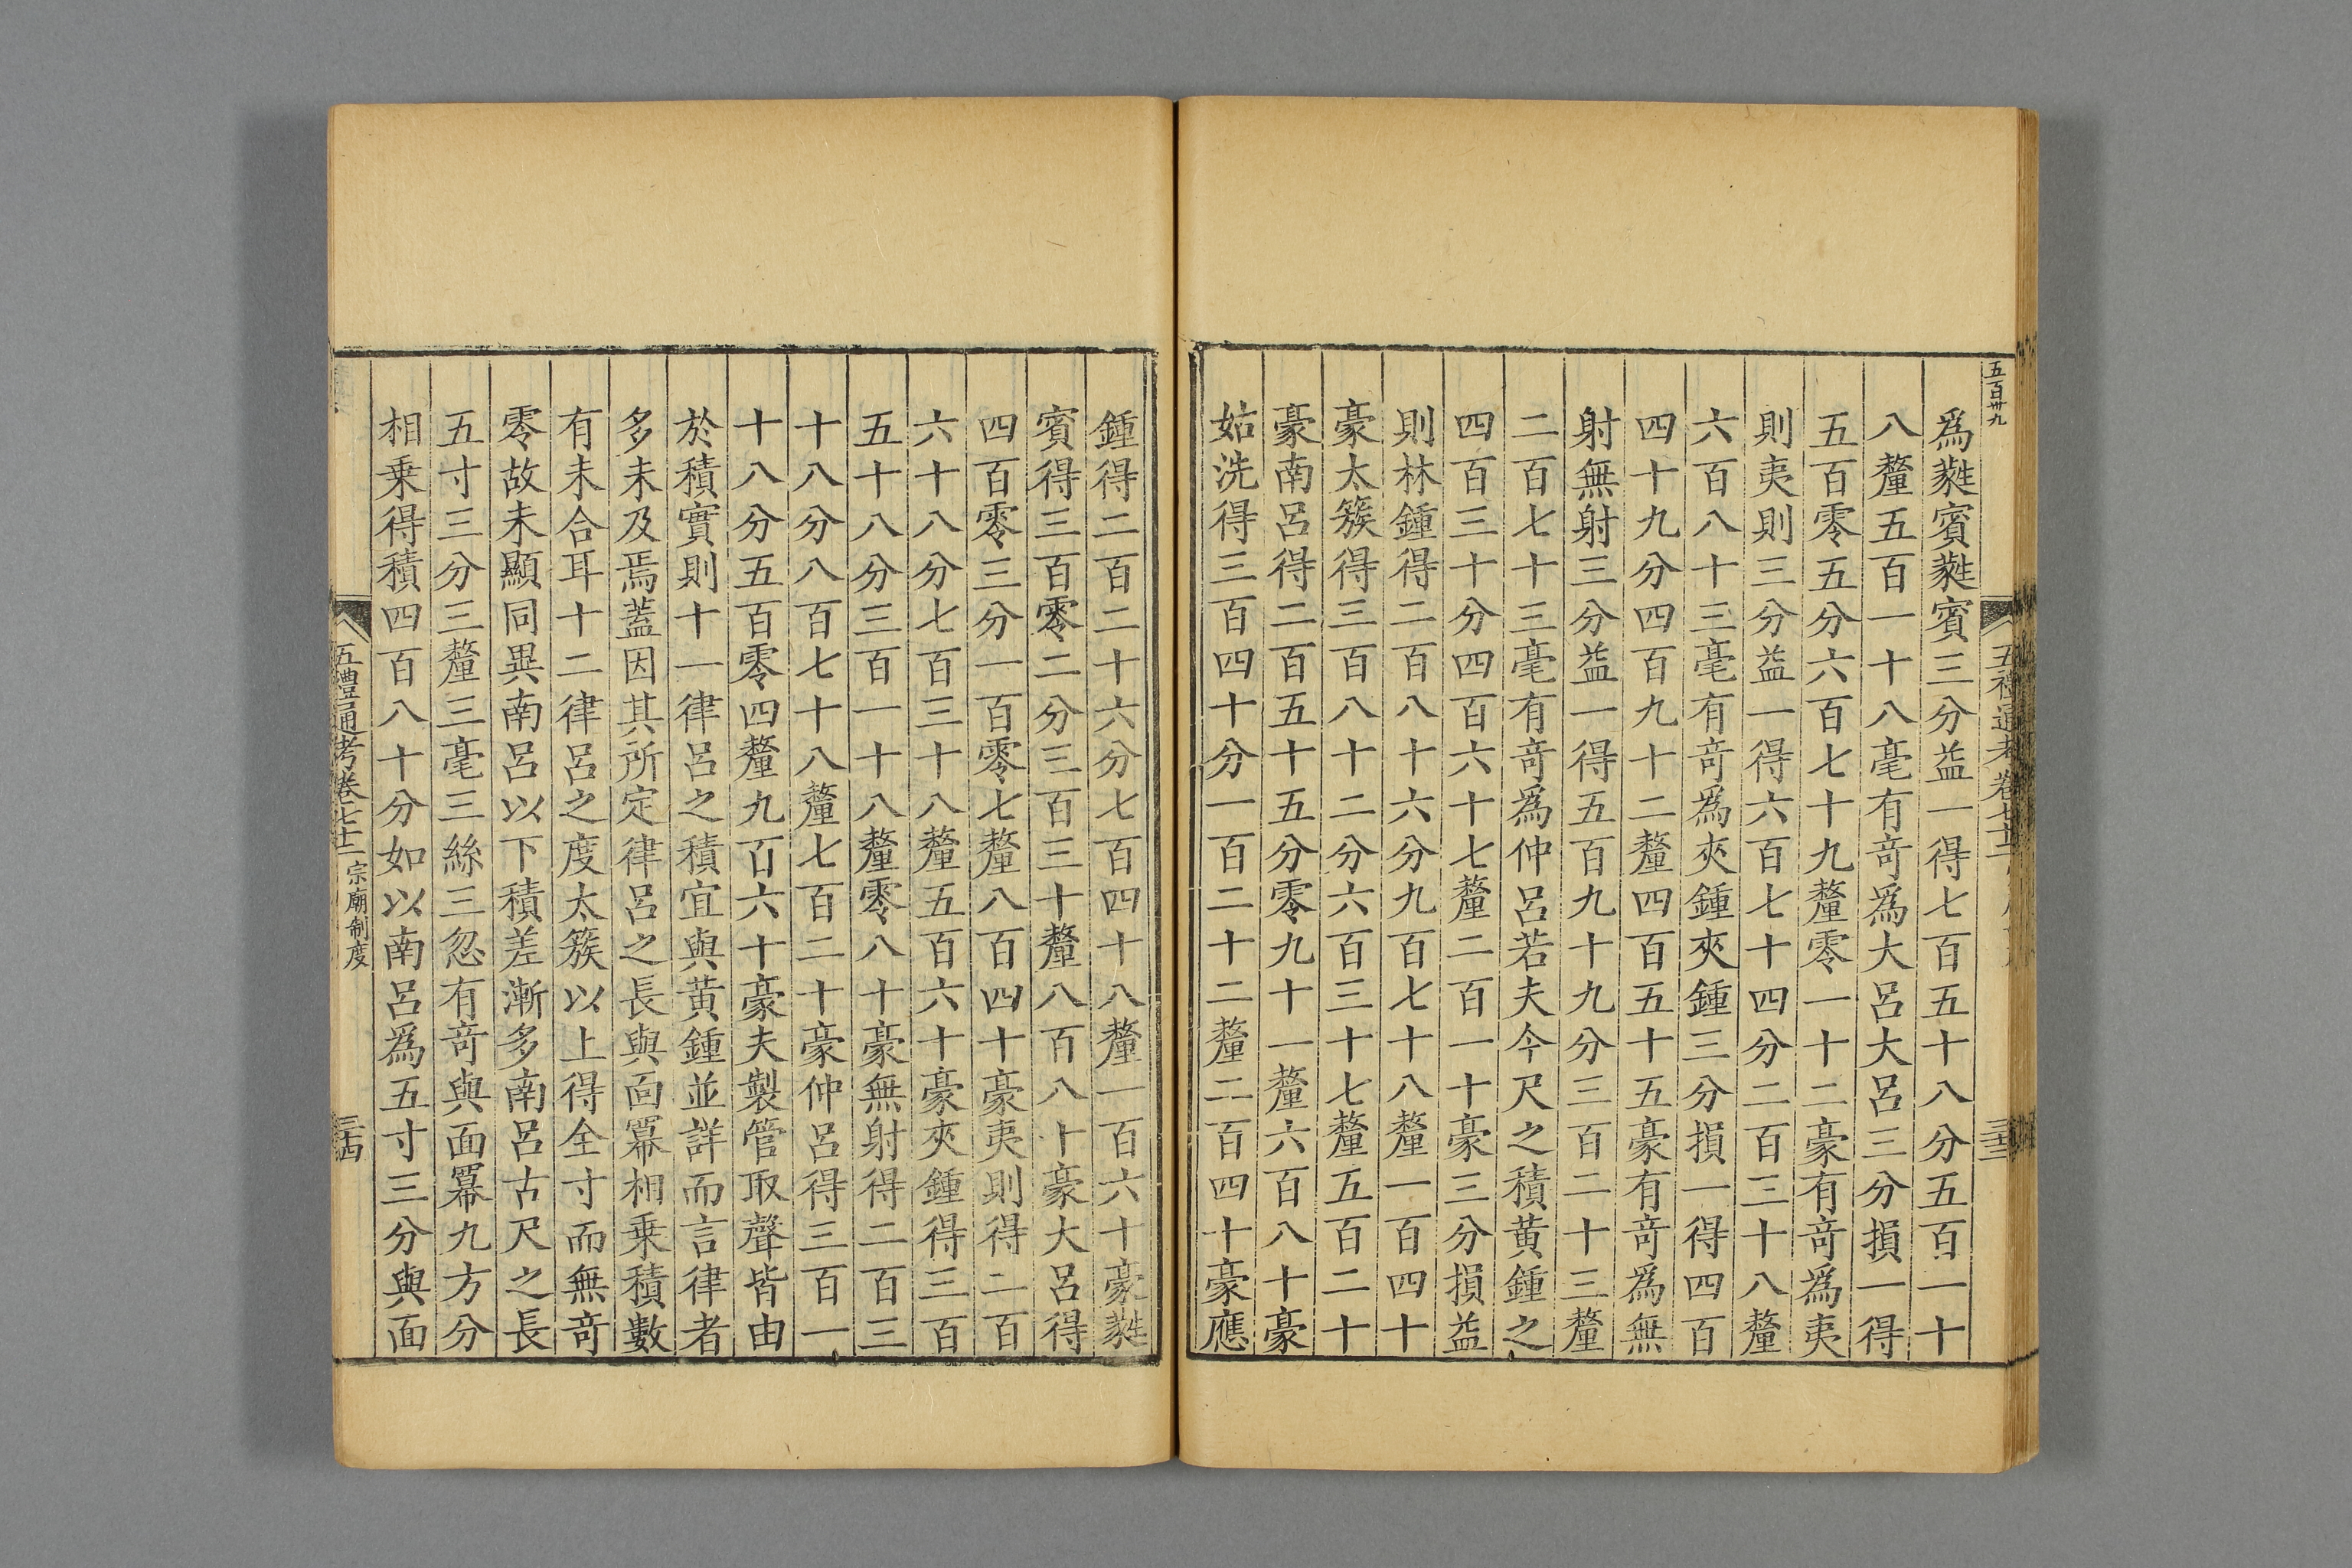 五百卅九
五禮通考卷七十二
三十三
爲蕤賓蕤賓三分益一得七百五十八分五百一十
八釐五百一十八毫有奇爲大呂大呂三分損一得
五百零五分六百七十九釐零一十二豪有奇爲夷
則夷則三分益一得六百七十四分二百三十八釐
六百八十三毫有奇爲夾鍾夾鍾三分損一得四百
四十九分四百九十二釐四百五十五豪有奇爲無
射無射三分益一得五百九十九分三百二十三釐
二百七十三毫有奇爲仲呂若夫今尺之積黃鍾之
四百三十分四百六十七釐二百一十豪三分損益
則林鍾得二百八十六分九百七十八釐一百四十
豪太簇得三百八十二分六百三十七釐五百二十
豪南呂得二百五十五分零九十一釐六百八十豪
姑洗得三百四十分一百二十二釐二百四十豪應
鍾得二百二十六分七百四十八釐一百六十豪蕤
賓得三百零二分三百三十釐八百八十豪大呂得
四百零三分一百零七釐八百四十豪夷則得二百
六十八分七百三十八釐五百六十豪夾鍾得三百
五十八分三百一十八釐零八十豪無射得二百三
十八分八百七十八釐七百二十豪仲呂得三百一
十八分五百零四釐九百六十豪夫製管取聲皆由
於積實則十一律呂之積宜與黃鍾並詳而言律者
多未及焉蓋因其所定律呂之長與面冪相乗積數
有未合耳十二律呂之度太簇以上得全寸而無奇
零故未顯同異南呂以下積差漸多南呂古尺之長
五寸三分三釐三毫三絲三忽有奇與面冪九方分
相乗得積四百八十分如以南呂爲五寸三分與面
五禮通考卷七十二 宗廟制度
三十四